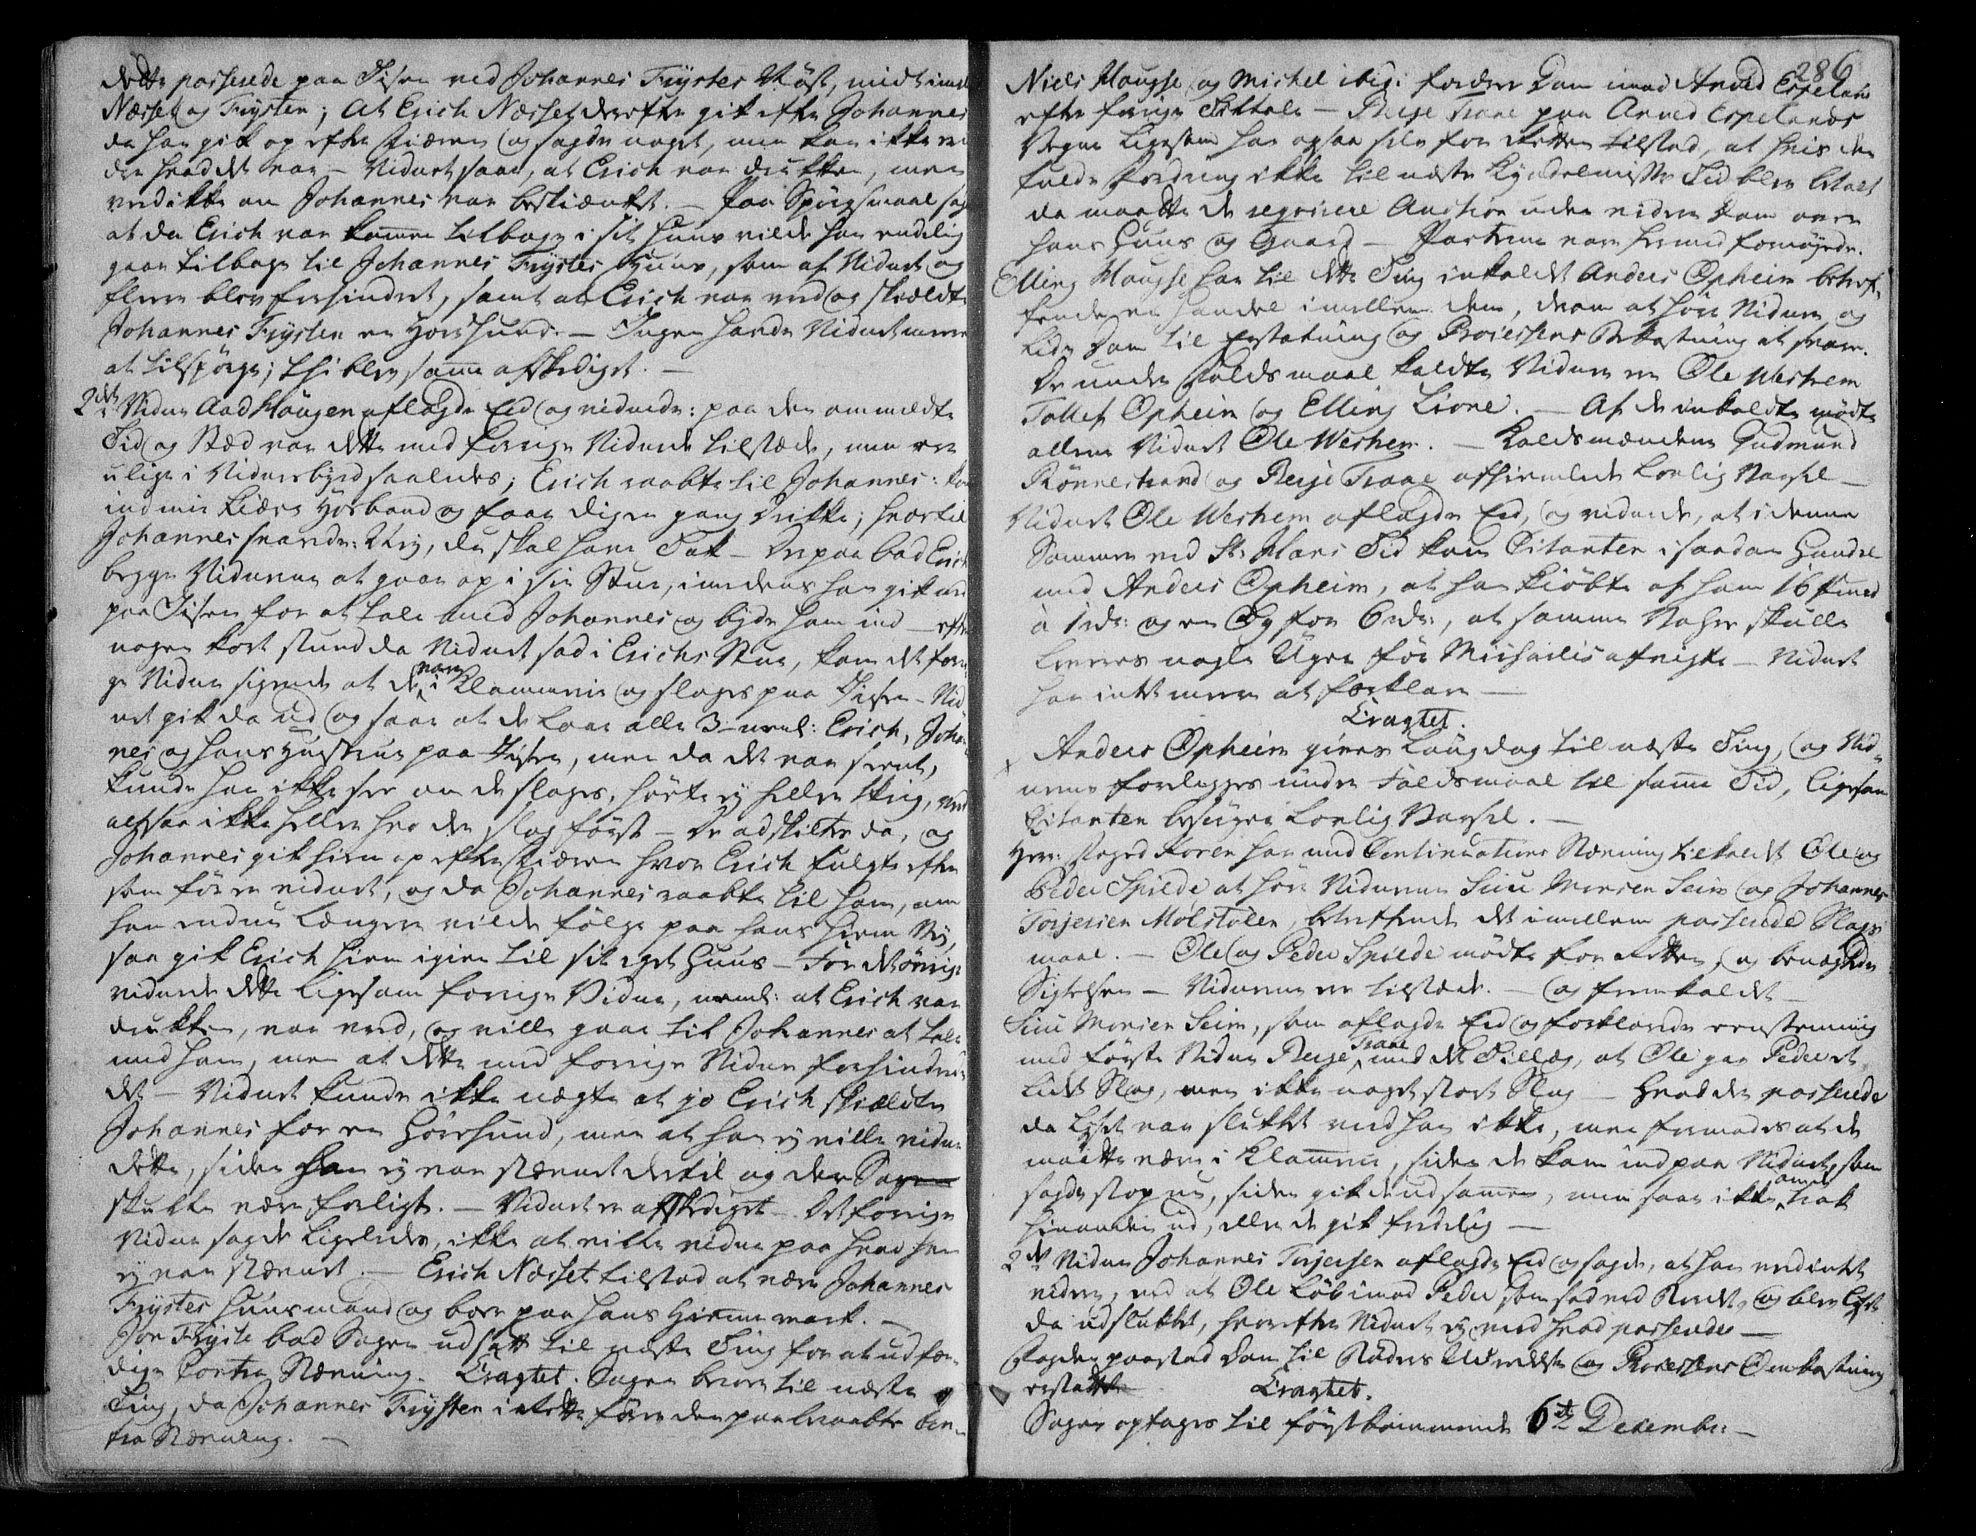 dette passerede paa Isen ved Johannes Frystes Nöst, midt imel
Næsset og Frysten; At Erich Næsset derefter gik efter Johannes
da han gik op efter stien og sagde noget, men kan ikke vi
de hvad det var – Vidnet saae, at Erich var drukken, men
ved ikke om Johannes var beskienket. – Paa Spörgsmaal sagde
at da Erich var kommen tilbage i sit Huus vilde han endelig
gaae tilbage til Johannes Frystes Huus, som af Vidnet og
fleere blev forhindret, samt at Erich var vred og skieldte
Johannes Frysten en Horehund. – Ingen havde Vidnet meere
at tilspörge; thi blev samme afskediget. –
2det Vidne Aad Haugen aflagde Eed og vidnede: paa den ommeldte
Tid og Stæd var dette med forrige Vidne tilstæde, men er
ulige i Vidnesbyrd saaledes; Erich raabte til Johannes: kom
ind min kiære Horband og faae dig en gang drikke; hvortil
Johannes svarede: Nei, du skal have Tak – Derpaa bad Erich
begge Vidnerne at gaae op i sin Stue, imedens han gik ned
paa Isen for at tale med Johannes og byde ham ind – efter
nogen kort stund da Vidnet sad i Erichs Stue, kom det forri
ge Vidne sigende at de vare i Klammerie og sloges paa Isen – Vid
net gik da ud og saae at de laae alle 3 – neml: Erich, Johan
nes og hans Hustrue paa Isen, men da det var seent,
kunde han ikke see om de sloges, hörte ej heller Skrig, veed
altsaa ikke heller hvo der slog först – De adskiltes da, og
Johannes gik hiem op efter stien hvor Erich fulgte efter
som förre vidnet, og da Johannes raabte til ham, om
han endnu længere vilde fölge paa hans hiem Vej,
saa gik Erich hiem igien til sit eget Huus – For det övrige
vidnede dette ligesom forrige Vidne, neml: at Erich var
drukken, var vred, og ville gaae til Johannes at tale
med ham, men at dette med forrige Vidne forhindrede
det – Vidnet kunde ikke nægte at jo Erich skieldte
Johannes for en Horehund, men at han ej ville vidne
dette, siden han ej var stævnet dertil og den Sag
skulle være forligt. – Vidnet er afskediget – Det forrige
Vidne sagde ligeledes, ikke at ville vidne paa hvad han
ej var stævnet. – Erich Næsset tilstod at være Johannes
Frystes Huusmand og boer paa hans Hiemmemark. –
Jon Fryste bad Sagen udsatt til næste Ting for at udfær
dige Contra Stævning. Eragtet. Sagen beroer til næste
Ting, da Johannes Frysten i rette förer den paaberaabte Con-
tra Stævning. –

286
Niels Haugse og Michel ibid: fordrer Dom imod Arved Espeland
efter forrige Tiltale – Berje Traae paa Arved Espelands
Vegne ligesom han ogsaa selv for Retten tilstod, at hvis den
fulde fordring ikke til næste Kyndelmisse Tid blev betalt
da maatte de reqvirere Auction uden videre Dom over
hans Huus og Gaard – Parterne vare hermed fornöyede.
Elling Haugse har til dette Ting indkaldet Anders Opheim betref-
fende en Handel imellem dem, derom at höre Vidner og
lide Dom til Erstatning og Processens Bekostning at svare.
De under Faldsmaal kaldte Vidner er Ole Westrem
Tollef Opheim og Elling Lione. – Af de indkaldte mödte
allene Vidnet Ole Westrem. – Kaldsmændene Gudmund
Rönnestrand og Berje Traae afhiemlede lovlig Varsel –
Vidnet Ole Westrem aflagde Eed, og vidnede, at i denne
Sommer ved St: Hans Tid kom Citanten i saadan Handel
med Anders Opheim, at han kiöbte af ham 16
à 1 rdr: og en Qvy for 6 rdr:, at samme Vahre skulle
leveres nogle Uger för Michaelis afvigte – Vidnet
har intet meere at forklare –
Eragtet.
Anders Opheim gives Laugdag til næste Ting, og Vid-
nerne forelegges under Faldsmaal til samme Tid, ligesom
Citanten besörger lovlig Varsel. –
Hr: Foged Koren har med Continuations Stævning tilkaldt Ole og
Peder Spilde at höre Vidnerne Siur Monsen Seim og Johannes
Torjersen Mölstölen betreffende det imellem passerede Slags
maal. – Ole og Peder Spilde mödte for Retten, og benægtede
Sigtelsen – Vidnerne er tilstæde. – og fremkaldet –
Siur Monsen Seim, som aflagde Eed og forklarede eenstemmig
med förste Vidne Berje Traae med det Tillæg, at Ole gav Peder et
lidet Slag, men ikke noget stort Slag – Hvad der passerede
da Lyset var slukket ved han ikke, men formodes at de
maatte være i Klammerie, siden de kom ind paa Vidnet, som
sagde stop nu, siden gik de ud sammen, men saae ikke om trak
hinanden ud, eller de gik fredelig –
2det Vidne Johannes Torjersen aflagde Eed og sagde, at han ved intet
videre, end at Ole Löb imod Peder som sad ved Bordet, og blev Lyset
da udslukket, hvorefter Vidnet ej veed hvad passerede –
Fogden paastod Dom til Böders Udreedelse og Processens Omkostning
erstattet Eragtet.
Sagen optages til förstkommende 6te December –